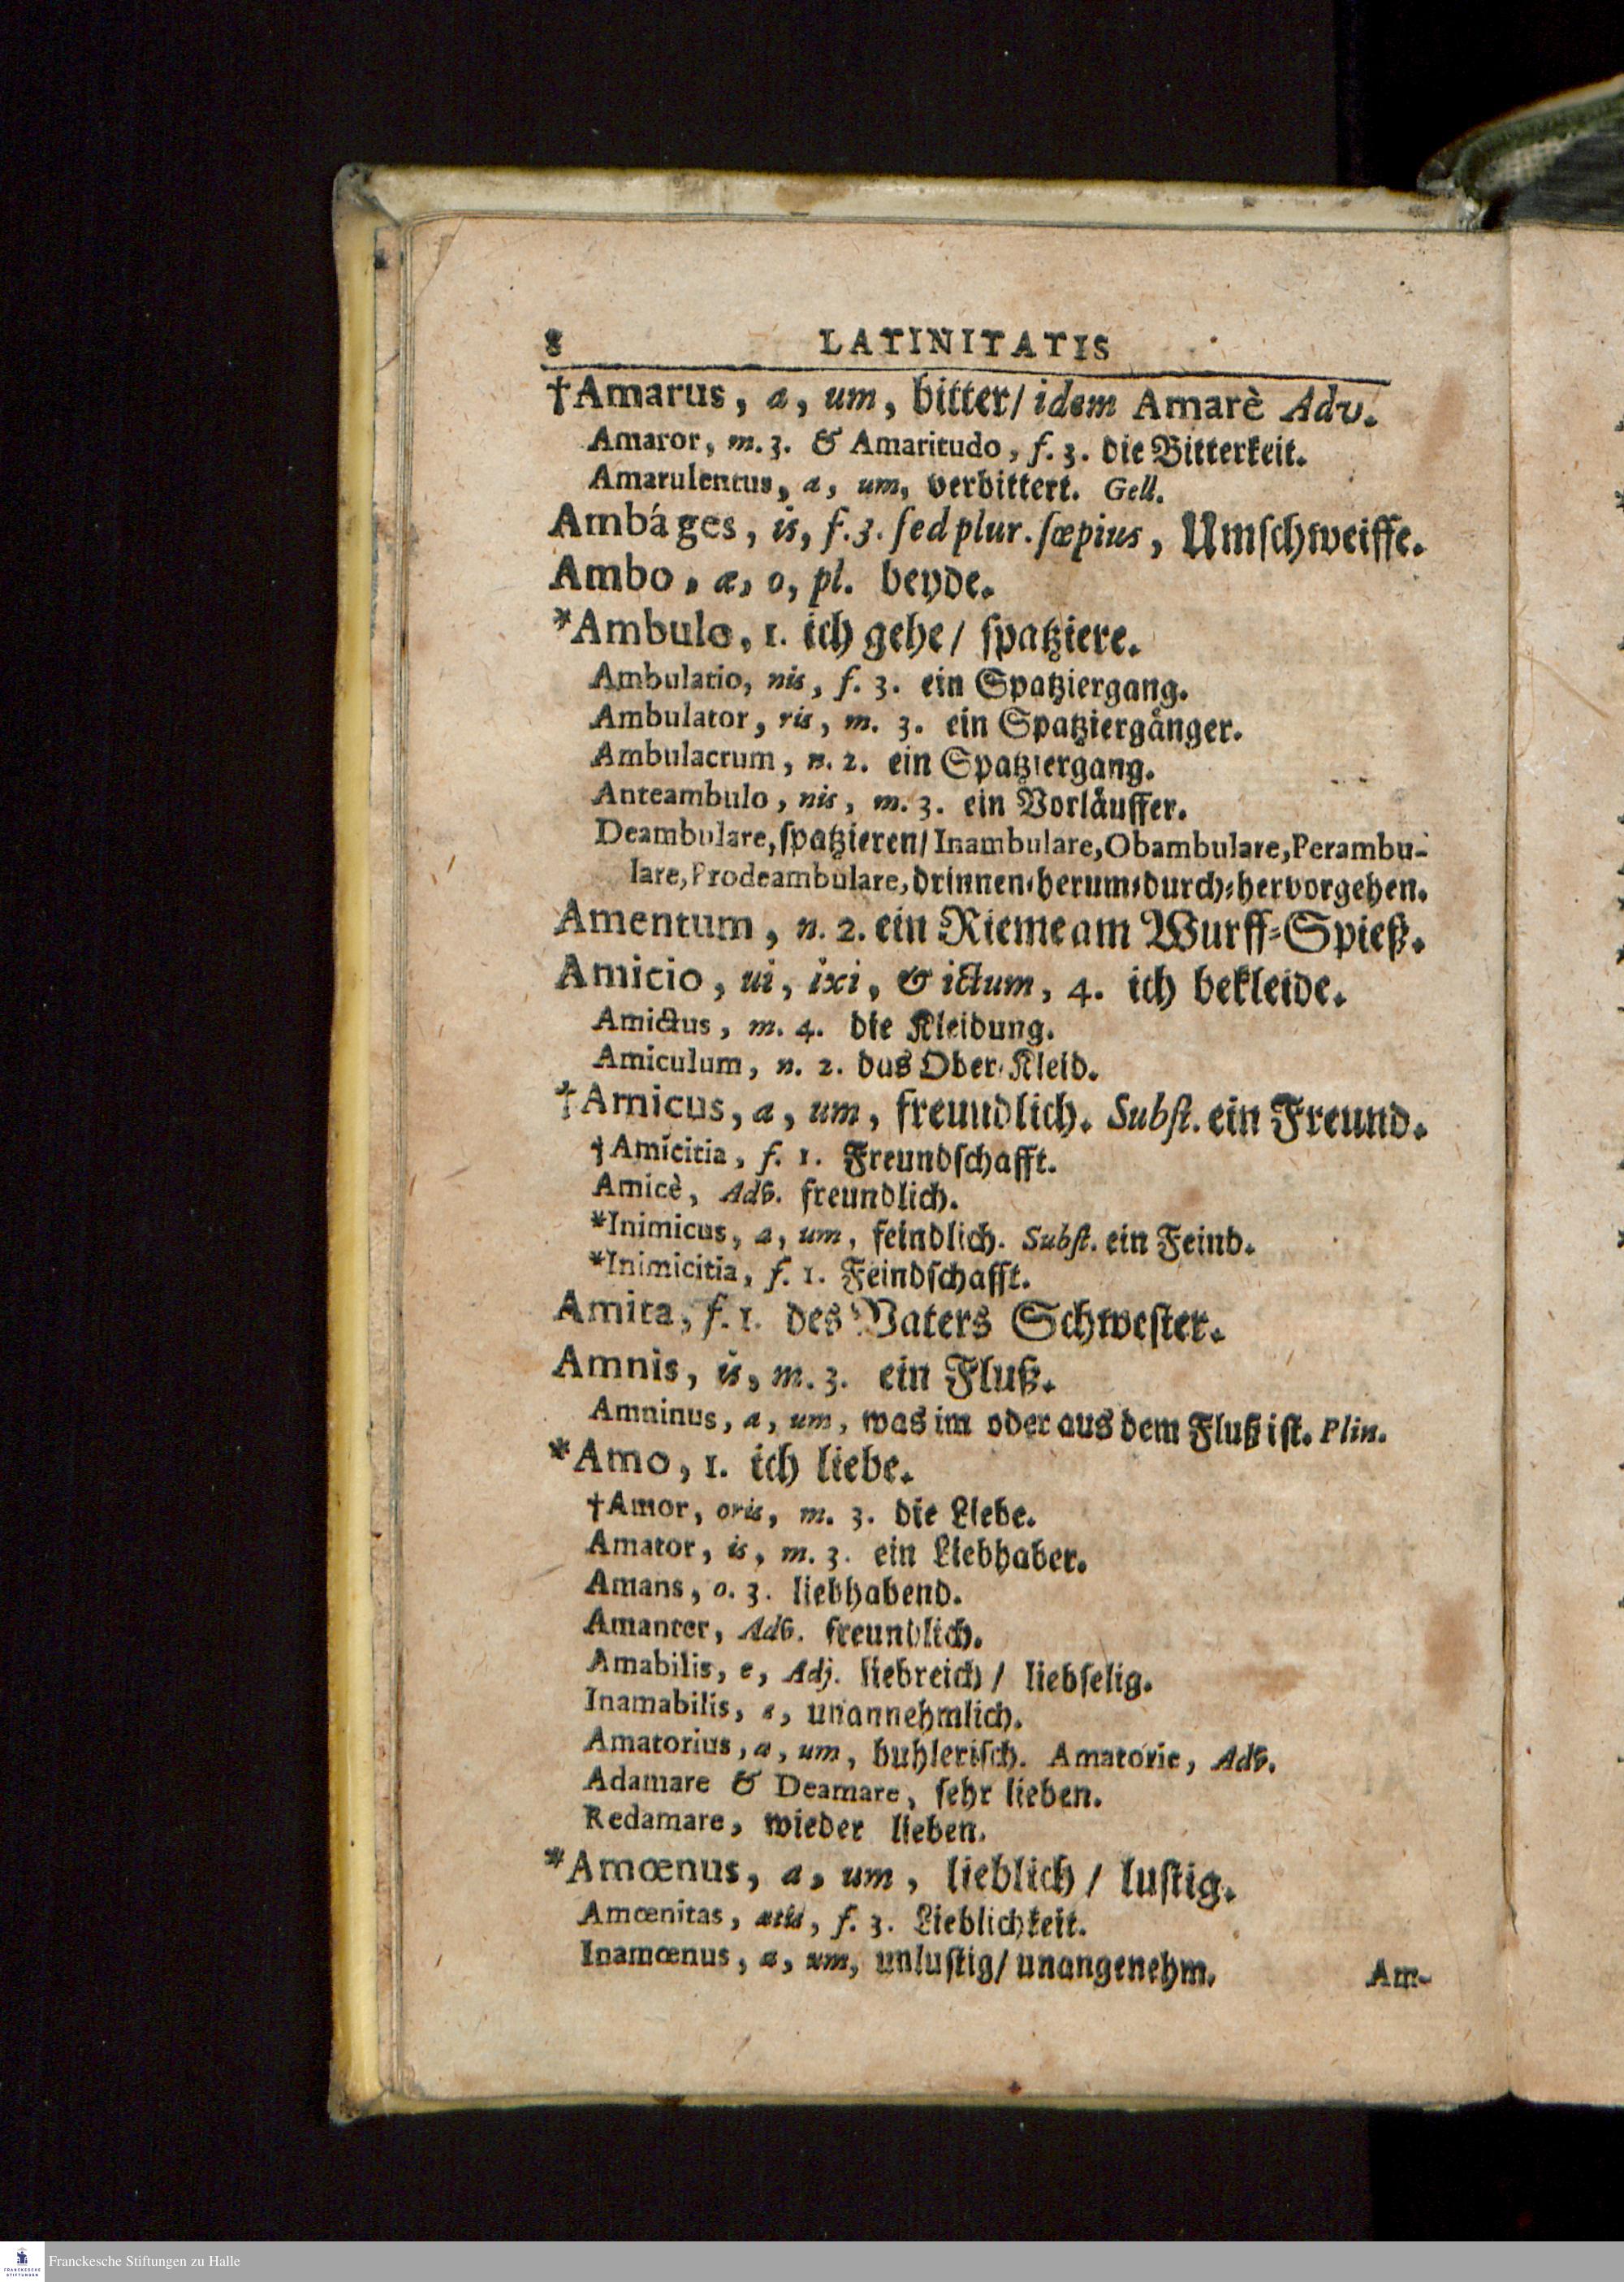 8 LATINITATIS
†Amarus, a, um, bitter/ idem Amarè Adv.
Amaror, m. 3. & Amaritudo, f. 3. die Bitterkeit.
Amarulentus, a, um, verbittert. Gell.
Ambáges, is, f. 3. ſed plur. ſæpius, Umſchweiffe.
Ambo, æ, o, pl. beyde.
*Ambulo, 1. ich gehe/ ſpatziere.
Ambulatio, nis, f. 3. ein Spatziergang.
Ambulator, ris, m. 3. ein Spatziergaͤnger.
Ambulacrum, n. 2. ein Spatziergang.
Anteambulo, nis, m. 3. ein Vorlaͤuffer.
Deambulare, ſpatzieren/ Inambulare, Obambulare, Perambu-
lare, Prodeambulare, drinnen-herum-durch-hervorgehen.
Amentum, n. 2. ein Rieme am Wurff-Spieß.
Amicio, ui, ixi, & ictum, 4. ich bekleide.
Amictus, m. 4. die Kleidung.
Amiculum, n. 2. das Ober-Kleid.
†Amicus, a, um, freundlich. Subſt. ein Freund.
†Amicitia, f. 1. Freundſchafft.
Amicè, Adv. freundlich.
*Inimicus, a, um, feindlich. Subſt. ein Feind.
*Inimicitia, f. 1. Feindſchafft.
Amita, f. 1. des Vaters Schweſter.
Amnis, is, m. 3. ein Fluß.
Amninus, a, um, was im oder aus dem Fluß iſt. Plin.
*Amo, 1. ich liebe.
†Amor, oris, m. 3. die Liebe.
Amator, is, m. 3. ein Liebhaber.
Amans, o. 3. liebhabend.
Amanter, Adv. freundlich.
Amabilis, e, Adj. liebreich/ liebſelig.
Inamabilis, e, unannehmlich.
Amatorius, a, um, buhleriſch. Amatorie, Adv.
Adamare & Deamare, ſehr lieben.
Redamare, wieder lieben.
*Amœnus, a, um, lieblich/ luſtig.
Amœnitas, atis, f. 3. Lieblichkeit.
Inamœnus, a, um, unluſtig/ unangenehm.
Am-
Franckesche Stiftungen zu Halle
FRANCKESCHE
STIFTUNGEN